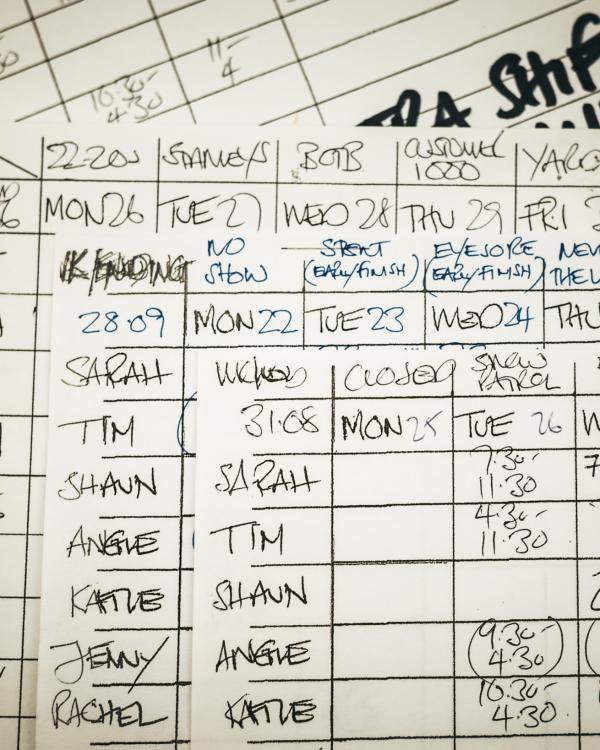 11-
4
10:30-
4:30
SHIF
22-20J STANLEYS BOTB CUSTOMER 1000 YARD
MON 26 TUE 27 WED 28 THU 29 FRI
WK/ENDING NO SHOW SPENT (EARLY/FINISH) EYESORE (EARLY/FINISH)
28·09 MON 22 TUE 23 WED 24 THU
SARAH
TIM
SHAUN
ANGIE
KATIE
JENNY
RACHEL
CLOSED SNOW PATROL
31·08 MON 25 TUE 26 W
SARAH 7:30-
11:30
TIM 4:30-
11:30
SHAUN
ANGIE (9:30-
4:30)
KATIE 10:30-
4:30